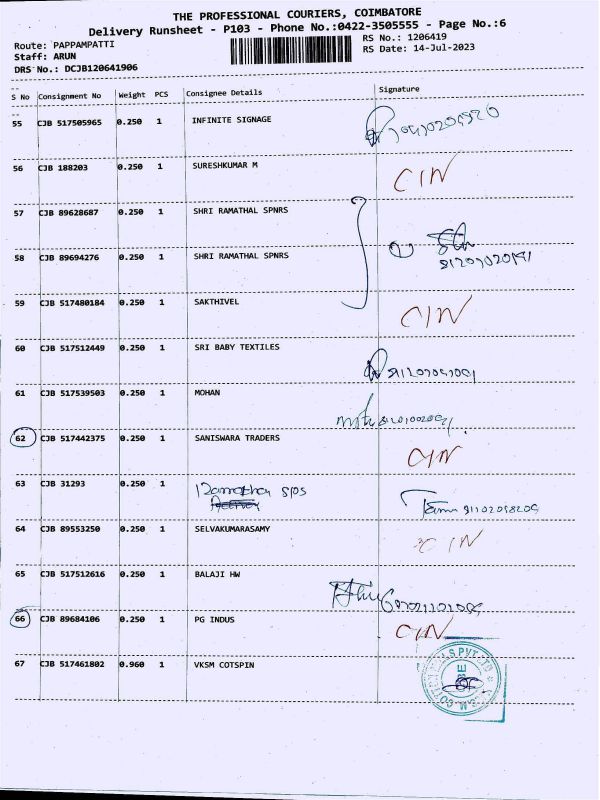 THE PROFESSIONAL COURIERS, COIMBATORE
Delivery Runsheet - P103 - Phone No.:0422-3505555 - Page No.:6
Route: PAPPAMPATTI
RS No.: 1206419
Staff: ARUN
RS Date: 14-Jul-2023
DRS No.: DCJB120641906
S No Consignment No Weight PCS Consignee Details Signature
55 CJB 517505965 0.250 1 INFINITE SIGNAGE
56 CJB 188203 0.250 1 SURESHKUMAR M CIN
57 CJB 89628687 0.250 1 SHRI RAMATHAL SPNRS
58 CJB 89694276 0.250 1 SHRI RAMATHAL SPNRS
59 CJB 517480184 0.250 1 SAKTHIVEL CIN
60 CJB 517512449 0.250 1 SRI BABY TEXTILES
61 CJB 517539503 0.250 1 MOHAN
62 CJB 517442375 0.250 1 SANISWARA TRADERS CIN
63 CJB 31293 0.250 1
64 CJB 89553250 0.250 1 SELVAKUMARASAMY CIN
65 CJB 517512616 0.250 1 BALAJI HW
66 CJB 89684106 0.250 1 PG INDUS CIN
67 CJB 517461802 0.960 1 VKSM COTSPIN